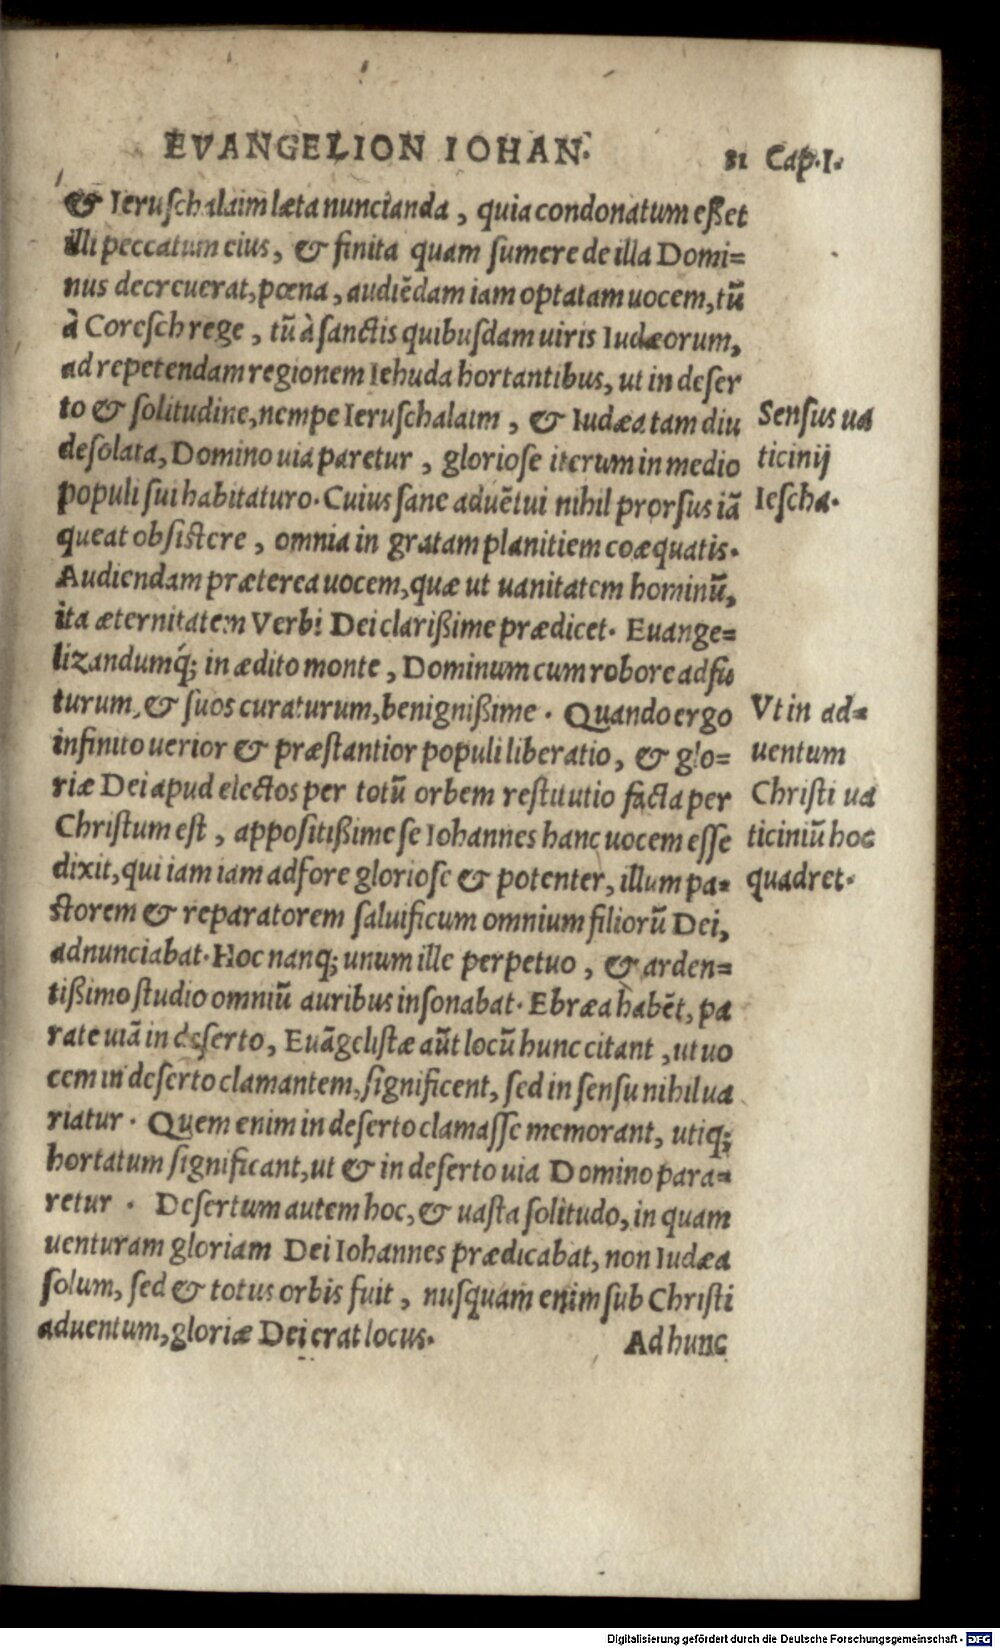 EVANGELION IOHAN.
81 Cap. I.
& Ieruſchalaim læta nuncianda, quia condonatum eßet
illi peccatum eius, & finita quam ſumere de illa Domi=
nus decreuerat, pœna, audiẽdam iam optatam uocem, tũ
à Coreſch rege, tũ à ſanctis quibuſdam uiris Iudæorum,
ad repetendam regionem Iehuda hortantibus, ut in deſer
to & ſolitudine, nempe Ieruſchalaim, & Iudæa tam diu
deſolata, Domino uia paretur, glorioſe iterum in medio
populi ſui habitaturo. Cuius ſane aduẽtui nihil prorſus iã
queat obſiſtere, omnia in gratam planitiem coæquatis.
Audiendam præterea uocem, quæ ut uanitatem hominũ,
ita æternitatem Verbi Dei clarißime prædicet. Euange=
lizandumq́; in ædito monte, Dominum cum robore adfu
turum, & ſuos curaturum, benignißime. Quando ergo
infinito uerior & præſtantior populi liberatio, & glo=
riæ Dei apud electos per totũ orbem reſtitutio facta per
Chriſtum eſt, appoſitißime ſe Iohannes hanc uocem eſſe
dixit, qui iam iam adfore glorioſe & potenter, illum pa=
ſtorem & reparatorem ſaluificum omnium filiorũ Dei,
adnunciabat. Hoc nanq; unum ille perpetuo, & arden=
tißimo ſtudio omniũ auribus inſonabat. Ebræa habẽt, pa
rate uiã in deſerto, Euãgeliſtæ aũt locũ hunc citant, ut uo
cem in deſerto clamantem, ſignificent, ſed in ſenſu nihil ua
riatur. Quem enim in deſerto clamaſſe memorant, utiq;
hortatum ſignificant, ut & in deſerto uia Domino para=
retur. Deſertum autem hoc, & uaſta ſolitudo, in quam
uenturam gloriam Dei Iohannes prædicabat, non Iudæa
ſolum, ſed & totus orbis fuit, nuſquam enim ſub Chriſti
aduentum, gloriæ Dei erat locus.
Ad hunc
Senſus ua
ticinij
Ieſcha.
Vt in ad=
uentum
Chriſti ua
ticiniũ hoc
quadret.
Digitalisierung gefördert durch die Deutsche Forschungsgemeinschaft - DFG